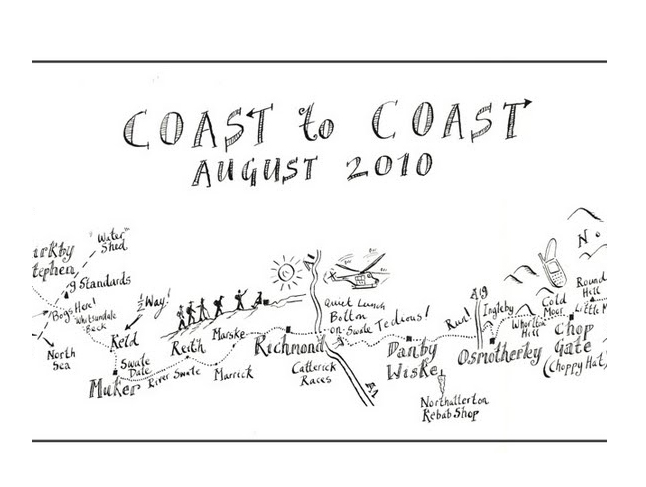 COAST to COAST
AUGUST 2010
"Water"
Shed
irkby
tephen
9 Standards
Bogs Here!
Whitsundale
Beck
½ Way!
North
Sea
Keld
Swale
Dale
Muker
River Swale
Reith
Marske
Marrick
Richmond
Quiet Lunch
Bolton
on-Swale
Tedious!
Catterick
Races
A1
Danby
Wiske
Northallerton
Kebab Shop
Run!
A19
Ingleby
Osmotherley
Whorlton
Hill
Cold
Moor
Chop
Gate
(Choppy Hat)
Round
Hill
Little M
N.